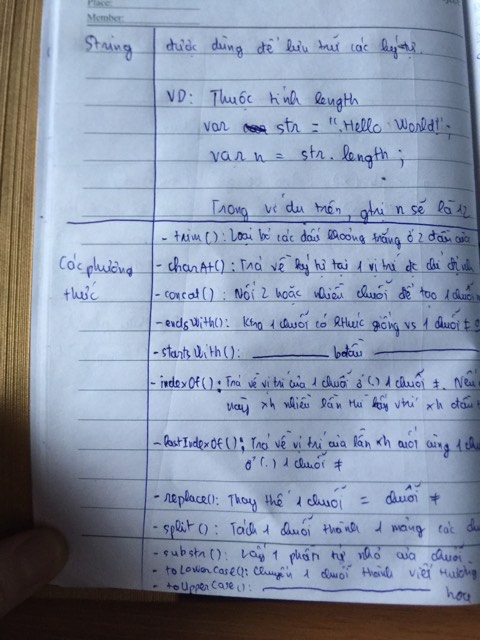 Place:
Member:
String được dùng để lưu trữ các ký tự.
VD: Thuộc tính length
var str = "Hello World!";
var n = str.length;
Trong ví dụ trên, gtrị n sẽ là 12
Các phương thức
- trim(): Loại bỏ các dấu khoảng trắng ở 2 đầu của
- charAt(): Trả về ký tự tại 1 vị trí đc chỉ định
- concat(): Nối 2 hoặc nhiều chuỗi để tạo 1 chuỗi
- endsWith(): Ktra 1 chuỗi có kthúc giống vs 1 chuỗi ≠
- startsWith(): ______ bđầu ______
- indexOf(): Trả về vị trí của 1 chuỗi ở (.) 1 chuỗi ≠. Nếu
này xh nhiều lần thì vtrí xh đầu
- lastIndexOf(): Trả về vị trí của lần xh cuối cùng 1
ở (.) 1 chuỗi ≠
- replace(): Thay thế 1 chuỗi = chuỗi ≠
- split(): Tách 1 chuỗi thành 1 mảng các
- substr(): Lấy 1 phần tử nhỏ của chuỗi
- toLowerCase(): Chuyển 1 chuỗi thành viết thường
- toUpperCase(): ______ hoa